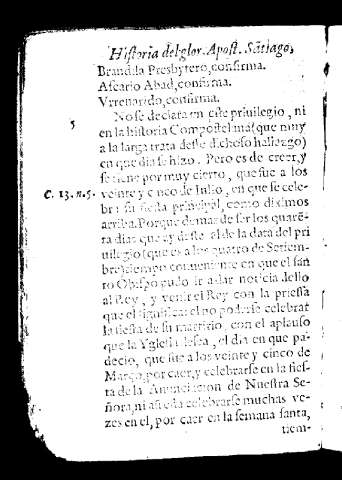 Historia del glor. Apost. Sãtiago,
Brandila Presbytero, confirma.
Ascario Abad, confirma.
Vrrenarido, confirma.
5
No se declara en este priuilegio, ni
en la historia Compostelana (que muy
a la larga trata deste dichoso hallazgo)
en que dia se hizo. Pero es de creer, y
se tiene por muy cierto, que fue a los
C. 13. n. 5. veinte y cinco de Iulio, en que se cele-
bra su fiesta principal, como diximos
arriba. Porque demas de ser los quarẽ-
ta dias que ay deste al de la data del pri
uilegio (que es a los quatro de Setiem-
bre) tiempo conueniente en que el san
to Obispo pudo ir a dar noticia dello
al Rey, y venir el Rey con la priessa
que el significa: el no poderse celebrar
la fiesta de su martirio, con el aplauso
que la Yglesia dessea, el dia en que pa-
decio, que fue a los veinte y cinco de
Março, por caer, y celebrarse en la fies-
ta de la Anunciacion de Nuestra Se-
ñora, ni aun celebrarse muchas ve-
zes en el, por caer en la semana santa,
tiem-